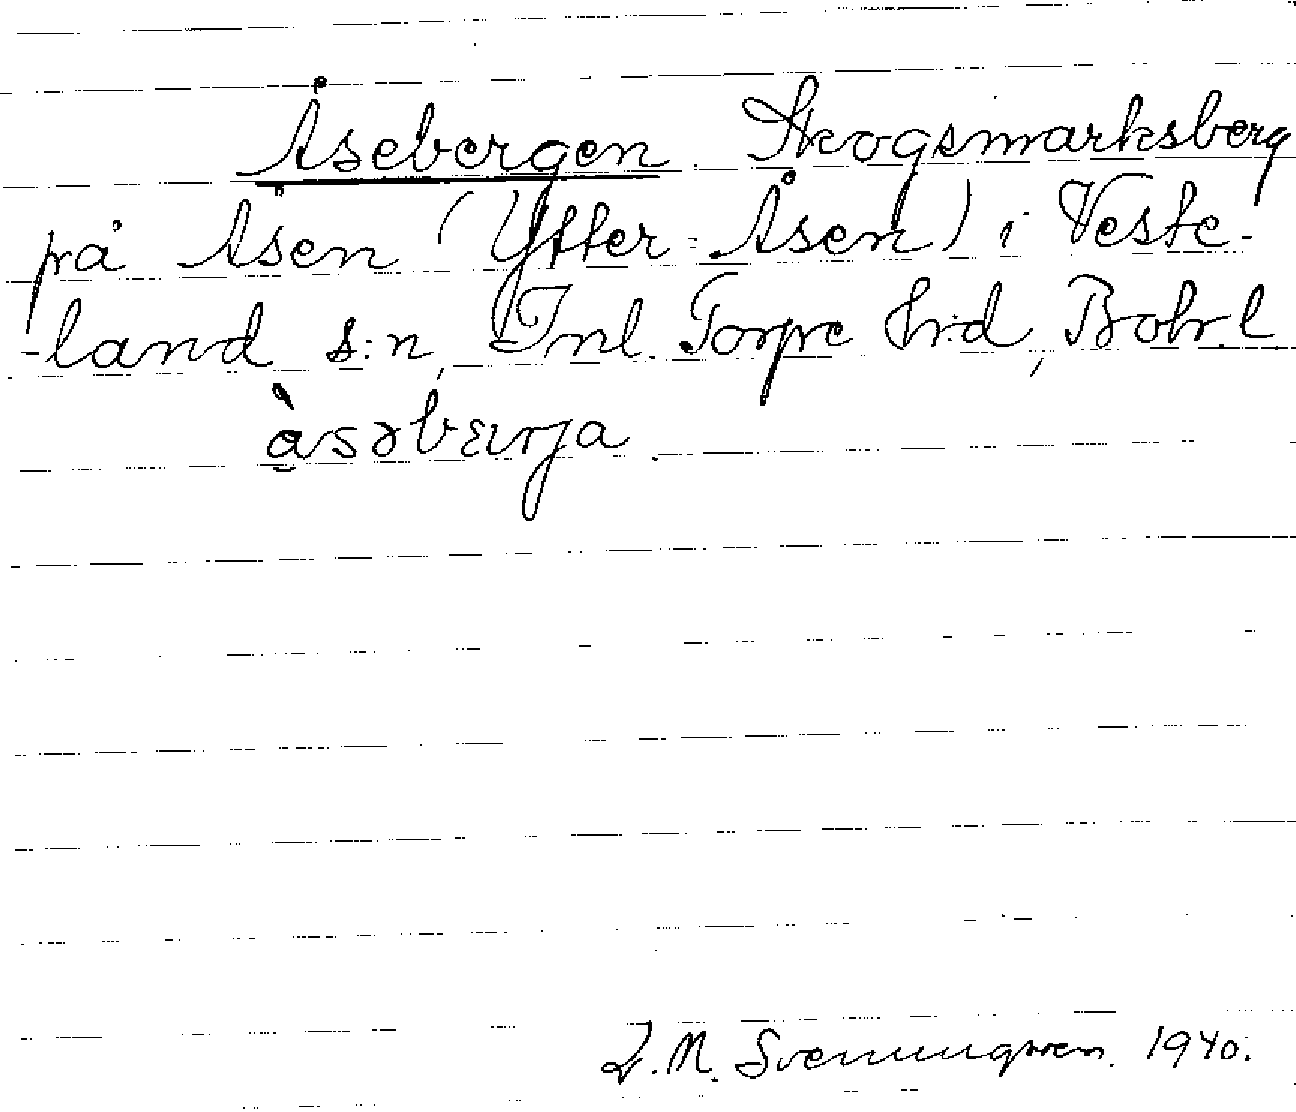 Åsebergen Skogsmarksberg
på Åsen (Ytter-Åsen) i Veste-
-land s:n, Inl. Torpe hrd, Bohr. l
åsəbærja
J. M. Svenungsson. 1940.